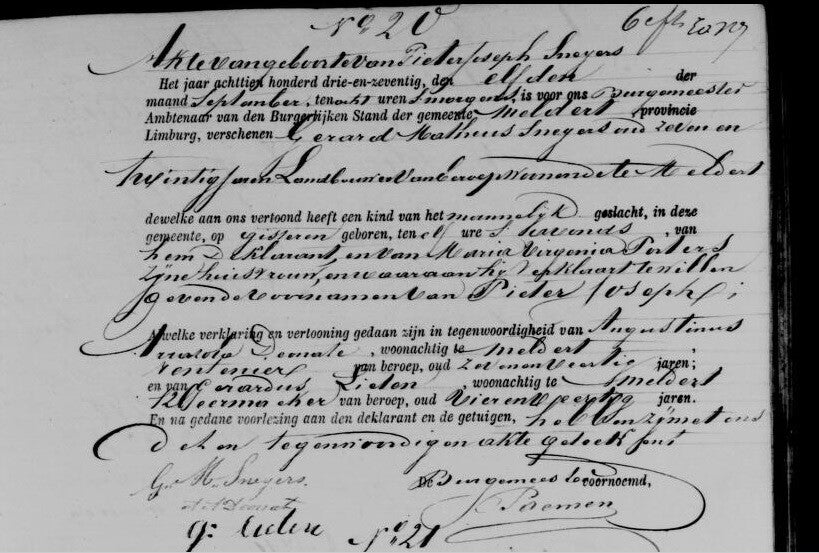 N° 20
Akte van geboorte van Pieter Joseph Snegers
Het jaar achttien honderd drie-en-zeventig, den elfden der
maand September, ten acht uren s'morgens, is voor ons Burgemeester
Ambtenaar van den Burgerlijken Stand der gemeente Meldert provincie
Limburg, verschenen Gerard Matheus Snegers oud zeven en
twintig jaren Landbouwer van beroep wonende te Meldert
dewelke aan ons vertoond heeft een kind van het mannelijk geslacht, in deze
gemeente, op gisteren geboren, ten elf ure s'avonds, van
hem Deklarant, en van Maria Virginia
zijne huisvrouw, en waaraan hij verklaart te willen
geven de voornamen van Pieter Joseph;
welke verklaring en vertooning gedaan zijn in tegenwoordigheid van Augustinus
woonachtig te Meldert
van beroep, oud zevenenveertig jaren;
en van Gerardus Lieten, woonachtig te Meldert
van beroep, oud vierenveertig jaren.
En na gedane voorlezing aan den deklarant en de getuigen, hebben zij met ons
dezen tegenwoordigen akte geteekend
G. M. Snegers.
De Burgemeester voornoemd,
g: Lieten
N° 21